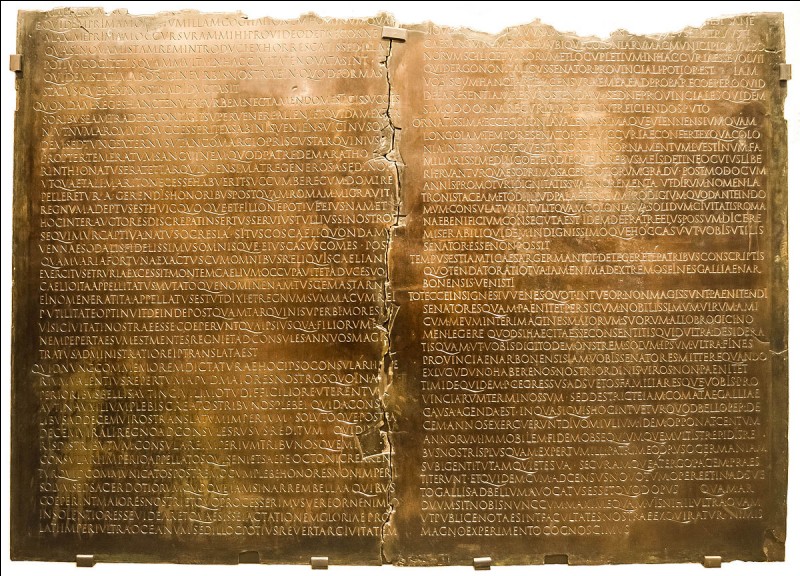 MAXIME PRIMAM OCCVRSVRAM MIHI PROVIDEO DEPRECOR NE
QVASI NOVAM ISTAM REM INTRODVCI EXHORRESCATIS SED ILLA
POTIVS COGITETIS QVAM MVLTA IN HAC CIVITATE NOVATA SINT ET
QVIDEM STATIM AB ORIGINE VRBIS NOSTRAE IN QVOD FORMAS
STATVSQVE RES P NOSTRA DIDVCTA SIT
QVONDAM REGES HANC TENVERE VRBEM NEC TAMEN DOMESTICIS SVCCES
SORIBVS EAM TRADERE CONTIGIT SVPERVENERE ALIENI ET QVIDAM EXTER
NI VT NVMA ROMVLO SVCCESSERIT EX SABINIS VENIENS VICINVS QVI
DEM SED TVNC EXTERNVS VT ANCO MARCIO PRISCVS TARQVINIVS
PROPTER TEMERATVM SANGVINEM QVOD PATRE DEMARATHO CO
RINTHIO NATVS ERAT ET TARQVINIENSI MATRE GENEROSA SED INOPI
VT QVAE TALI MARITO NECESSE HABVERIT SVCCVMBERE CVM DOMI RE
PELLERETVR A GERENDIS HONORIBVS POSTQVAM ROMAM MIGRAVIT
REGNVM ADEPTVS EST HVIC QVOQVE ET FILIO NEPOTIVE EIVS NAM ET
HOC INTER AVCTORES DISCREPAT INSERTVS SERVIVS TVLLIVS SI NOSTROS
SEQVIMVR CAPTIVA NATVS OCRESIA SI TVSCOS CAELI QVONDAM VI
VENNAE SODALIS FIDELISSIMVS OMNISQVE EIVS CASVS COMES POST
QVAM VARIA FORTVNA EXACTVS CVM OMNIBVS RELIQVIS CAELIANI
EXERCITVS ETRVRIA EXCESSIT MONTEM CAELIVM OCCVPAVIT ET A DVCE SVO
CAELIO ITA APPELLITATVS MVTATOQVE NOMINE NAM TVSCE MASTARNA
EI NOMEN ERAT ITA APPELLATVS EST VT DIXI ET REGNVM SVMMA CVM REI
P VTILITATE OPTINVIT DEINDE POSTQVAM TARQVINI SVPERBI MORES IN
VISI CIVITATI NOSTRAE ESSE COEPERVNT QVA IPSIVS QVA FILIORVM EIVS
NEMPE PERTAESVM EST MENTES REGNI ET AD CONSVLES ANNVOS MAGIS
TRATVS ADMINISTRATIO REI P TRANSLATA EST
QVID NVNC COMMEMOREM DICTATVRAE HOC IPSO CONSVLARI IMPE
RIVM VALENTIVS REPERTVM APVD MAIORES NOSTROS QVO IN AS
PERIORIBVS BELLIS AVT IN CIVILI MOTV DIFFICILIORE VTERENTVR
AVT IN AVXILIVM PLEBIS CREATOS TRIBVNOS PLEBEI QVID A CONSV
LIBVS AD DECEMVIROS TRANSLATVM IMPERIVM SOLVTOQVE POSTEA
DECEMVIRALI REGNO AD CONSVLES RVSVS REDITVM QVID IN
RIS DISTRIBVTVM CONSVLARE IMPERIVM TRIBVNOSQVE
CONSVLARI IMPERIO APPELLATOS QVI SENI ET SAEPE OCTONI CREAREN
TVR QVID COMMVNICATOS POSTREMO CVM PLEBE HONORES NON IMPERI
SOLVM SED SACERDOTIORVM QVOQVE IAM SI NARREM BELLA A QVIBVS
COEPERINT MAIORES NOSTRI ET QVO PROCESSERIMVS VEREOR NE NIMIO
INSOLENTIOR ESSE VIDEAR ET QVAESISSE IACTATIONEM GLORIAE PRO
LATI IMPERI VLTRA OCEANVM SED ILLOC POTIVS REVERTAR CIVITATEM
VBIQVE COLONIARVM AC MVNICIPIORVM
BONORVM SCILICET VIRORVM ET LOCVPLETIVM IN HAC CVRIA ESSE VOLVIT
QVID ERGO NON ITALICVS SENATOR PROVINCIALI POTIOR EST IAM
VOBIS CVM HANC PARTEM CENSVRAE MEAE ADPROBARE COEPERO QVID
DE EA RE SENTIAM REBVS OSTENDAM SED NE PROVINCIALES QVIDEM
SI MODO ORNARE CVRIAM POTERINT REICIENDOS PVTO
ORNATISSIMA ECCE COLONIA VALENTISSIMAQVE VIENNENSIVM QVAM
LONGO IAM TEMPORE SENATORES HVIC CVRIAE CONFERT EX QVA COLO
NIA INTER PAVCOS EQVESTRIS ORDINIS ORNAMENTVM L VESTINVM FA
MILIARISSIME DILIGO ET HODIEQVE IN REBVS MEIS DETINEO CVIVS LIBE
RI FRVANTVR QVAESO PRIMO SACERDOTIORVM GRADV POST MODO CVM
ANNIS PROMOTVRI DIGNITATIS SVAE INCREMENTA VT DIRVM NOMEN LA
TRONIS TACEAM ET ODI ILLVD PALAESTRICVM PRODIGIVM QVOD ANTE IN DO
MVM CONSVLATVM INTVLIT QVAM COLONIA SVA SOLIDVM CIVITATIS ROMA
NAE BENEFICIVM CONSECVTA EST IDEM DE FRATRE EIVS POSSVM DICERE
MISERABILI QVIDEM INDIGNISSIMOQVE HOC CASV VT VOBIS VTILIS
SENATOR ESSE NON POSSIT
TEMPVS EST IAM TI CAESAR GERMANICE DETEGERE TE PATRIBVS CONSCRIPTIS
QVO TENDAT ORATIO TVA IAM ENIM AD EXTREMOS FINES GALLIAE NAR
BONENSIS VENISTI
TOT ECCE INSIGNES IVVENES QVOT INTVEOR NON MAGIS SVNT PAENITENDI
SENATORES QVAM PAENITET PERSICVM NOBILISSIMVM VIRVM AMI
CVM MEVM INTER IMAGINES MAIORVM SVORVM ALLOBROGICI NO
MEN LEGERE QVOD SI HAEC ITA ESSE CONSENTITIS QVID VLTRA DESIDERA
TIS QVAM VT VOBIS DIGITO DEMONSTREM SOLVM IPSVM VLTRA FINES
PROVINCIAE NARBONENSIS IAM VOBIS SENATORES MITTERE QVANDO
EX LVGVDVNO HABERE NOS NOSTRI ORDINIS VIROS NON PAENITET
TIMIDE QVIDEM P C EGRESSVS ADSVETOS FAMILIARESQVE VOBIS PRO
VINCIARVM TERMINOS SVM SED DESTRICTE IAM COMATAE GALLIAE
CAVSA AGENDA EST IN QVA SI QVIS HOC INTVETVR QVOD BELLO PER DE
CEM ANNOS EXERCVERVNT DIVOM IVLIVM IDEM OPPONAT CENTVM
ANNORVM IMMOBILEM FIDEM OBSEQVIVMQVE MVLTIS TREPIDIS RE
BVS NOSTRIS PLVSQVAM EXPERTVM ILLI PATRI MEO DRVSO GERMANIAM
SVBIGENTI TVTAM QVIETE SVA SECVRAMQVE A TERGO PACEM PRAES
TITERVNT ET QVIDEM CVM AD CENSVS NOVO TVM OPERE ET INADSVE
TO GALLIS AD BELLVM AVOCATVS ESSET QVOD OPVS QVAM AR
DVVM SIT NOBIS NVNC CVM MAXIME QVAMVIS NIHIL VLTRA QVAM
VT PVBLICE NOTAE SINT FACVLTATES NOSTRAE EXQVIRATVR NIMIS
MAGNO EXPERIMENTO COGNOSCIMVS